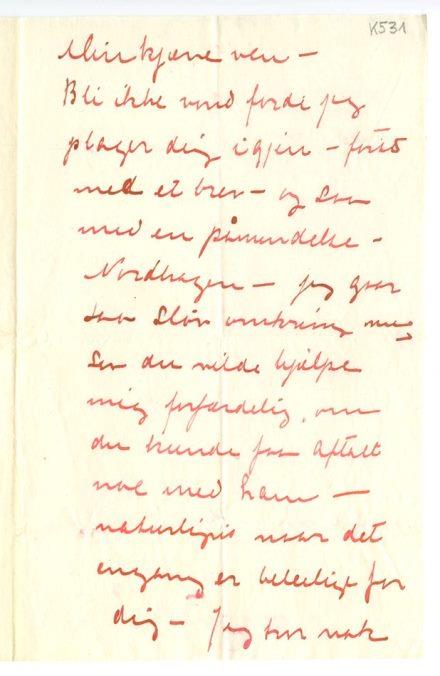 K531
Min kjære ven –
Bli ikke vond fordi jeg
plager dig igjen – først
med et brev – og saa
med en påmindelse –
Nordhagen – jeg gaar
saa sløv omkring nu,
så du vilde hjelpe
mig forfærdelig, om
du kunde faa aftalt
noe med ham –
naturligvis naar det
engang er beleiligt for
dig – Jeg tror nok